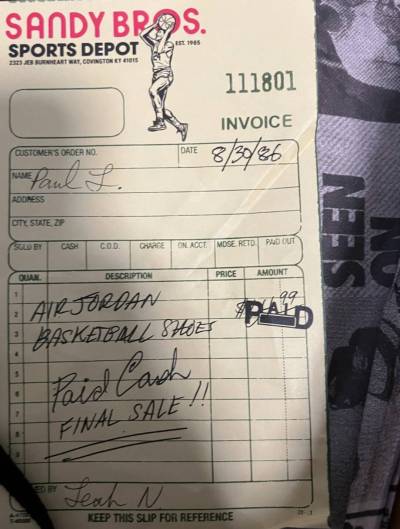 SANDY BROS.
SPORTS DEPOT EST. 1965
2323 JEB BURNHEART WAY, COVINGTON KY 41015
111801
INVOICE
CUSTOMER'S ORDER NO. DATE 8/30/86
NAME Paul L.
ADDRESS
CITY, STATE, ZIP
SOLD BY CASH C.O.D. CHARGE ON. ACCT. MDSE. RETD. PAID OUT
QUAN. DESCRIPTION PRICE AMOUNT
1
2 AIR JORDAN $ 99
PAID
3 BASKETBALL SHOES
4
5
6 Paid Cash
7 FINAL SALE!!
8
9
BY Leah N
KEEP THIS SLIP FOR REFERENCE
SEEN
ON